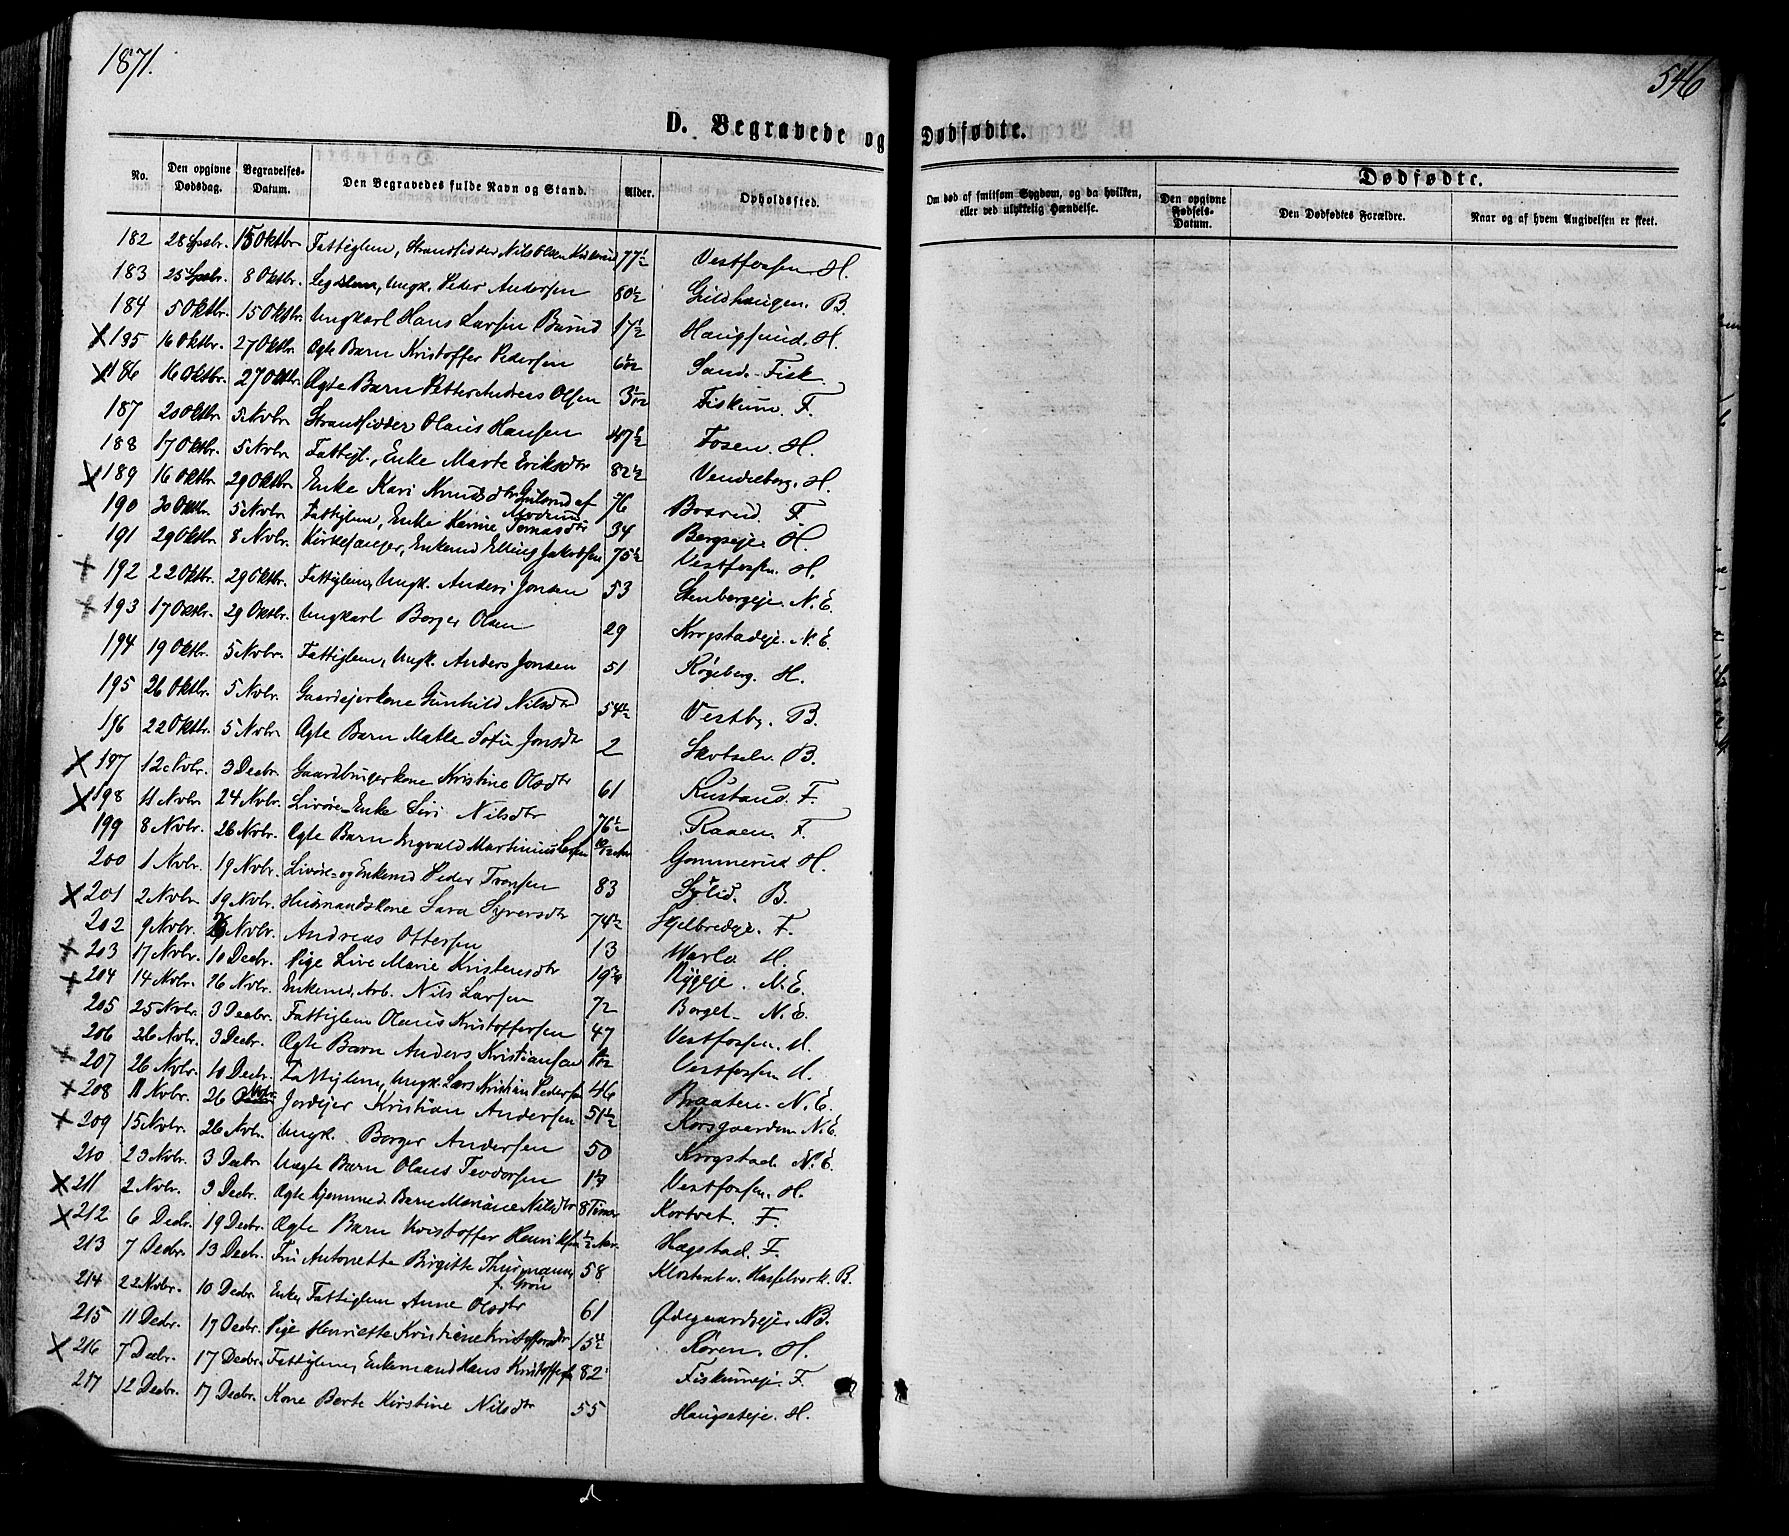 1871.
546
D. Begravede og Dødfødte.
No. Den opgivne Dødsdag. Begravelses-Datum. Den Begravedes fulde Navn og Stand. Alder. Opholdssted. Om død af smitsom Sygdom, og da hvilken, eller ved ulykkelig Hændelse. Dødfødte. Den opgivne Fødsels-Datum. Den Dødfødtes Forældre. Naar og af hvem Angivelsen er skeet.
182 28 Spbr. 15 Oktbr. Fattiglem, Strandsidder Nils Olsen 77½ Vestfossen. H.
183 25 Spbr. 8 Oktbr. Legdslem, Ungk. Peder Andersen 80½ Guldhaugen. B.
184 5 Oktbr. 15 Oktbr. Ungkarl Hans Larsen 17½ Haugsund. H.
X 185 16 Oktbr. 27 Oktbr. Ægte Barn Kristoffer Pedersen Sand. Fisk.
X 186 16 Oktbr. 27 Oktbr. Ægte Barn Petter Andreas Olsen Fiskum. F.
187 20 Oktbr. 5 Nvbr. Strandsidder Olaus Hansen 47½ Fosen. H.
188 17 Oktbr. 5 Nvbr. Fattigl., Enke Marte Eriksdtr 82½ Vendelborg. H.
X 189 16 Oktbr. 29 Oktbr. Enke Kari Knudsdtr af Modum 76 Bosrud. F.
190 30 Oktbr. 5 Nvbr. Fattiglem, Enke Karine Tomasdtr 34 Bergseje. H.
191 29 Oktbr. 8 Nvbr. Kirkesanger, Enkemd Elling Jakobsen 75½ Vestfossen. H.
+ 192 22 Oktbr. 29 Oktbr. Fattiglem, Ungk. Anders Jonsen 53 Stenbergeje. N.E.
+ 193 17 Oktbr. 29 Oktbr. Ungkarl Borger Olsen 29 Krogstadeje. N.E.
194 19 Oktbr. 5 Nvbr. Fattiglem, Ungk. Anders Jonsen 51 Røgeberg. H.
195 26 Oktbr. 5 Nvbr. Gaardejerkone Gunhild Nilsdtr 54½ Vestby. B.
196 22 Oktbr. 5 Nvbr. Ægte Barn Matle Sofie Jonsdtr 2 Skotselv. B.
X 197 12 Nvbr. 3 Decbr. Gaardbrugerkone Kristine Olsdtr 61 Rustand. F.
X 198 11 Nvbr. 24 Nvbr. Livøre-Enke Siri Nilsdtr 76½ Raaen. F.
199 8 Nvbr. 26 Nvbr. Ægte Barn Ingvald Martinius Larsen Gommerud H.
200 1 Nvbr. 19 Nvbr. Livøre- og Enkemd Peder Tronsen 83 B.
X 201 2 Nvbr. 19 Nvbr. Husmandskone Sara Syversdtr 74½ Skjelbredeje. F.
202 9 Nvbr. 26 Nvbr. Andreas Ottersen 13 Warlo H.
+ 203 17 Nvbr. 10 Decbr. Pige Live Marie Kristensdtr Rygeje. N.E.
+ 204 14 Nvbr. 26 Nvbr. Enkemd, Arb. Nils Larsen 72 Borget N.E.
205 25 Nvbr. 3 Decbr. Fattiglem Olaus Kristoffersen 47 Vestfossen. H.
206 26 Nvbr. 3 Decbr. Ægte Barn Anders Kristiansen Vestfossen H.
+ 207 26 Nvbr. 10 Decbr. Fattiglem, Ungk. Lars Kristian Pedersen 46 Braaten. N.E.
+ 208 11 Nvbr. 26 Nvbr. Jordejer Kristian Andersen 51½ Korsgaarden N.E.
+ 209 15 Nvbr. 26 Nvbr. Ungk. Borger Andersen 50 Krogstad. N.E.
210 23 Nvbr. 3 Decbr. Uægte Barn Olaus Teodorsen Vestfossen. H.
X 211 2 Nvbr. 3 Decbr. Ægte hjemmed. Barn Mariane Nilsdtr 8 Timer Kortvet. F.
X 212 6 Decbr. 19 Decbr. Ægte Barn Kristoffer Henriksen Hægstad. F.
213 7 Decbr. 13 Decbr. Fru Antonette Birgitte Thurmann, f. Grøn 58 Hasselverk. B.
214 22 Nvbr. 10 Decbr. Enke, Fattiglem Anne Olsdtr 61 Ødegaardseje. B.
215 11 Decbr. 17 Decbr. Pige Henriette Kristiane Kristoffersdtr 15½ Røren. H.
X 216 7 Decbr. 17 Decbr. Fattiglem, Enkemand Hans Kristoffersen 82 Fiskumeje. F.
217 12 Decbr. 17 Decbr. Kone Berte Kirstine Nilsdtr 55 Haugseteje. H.